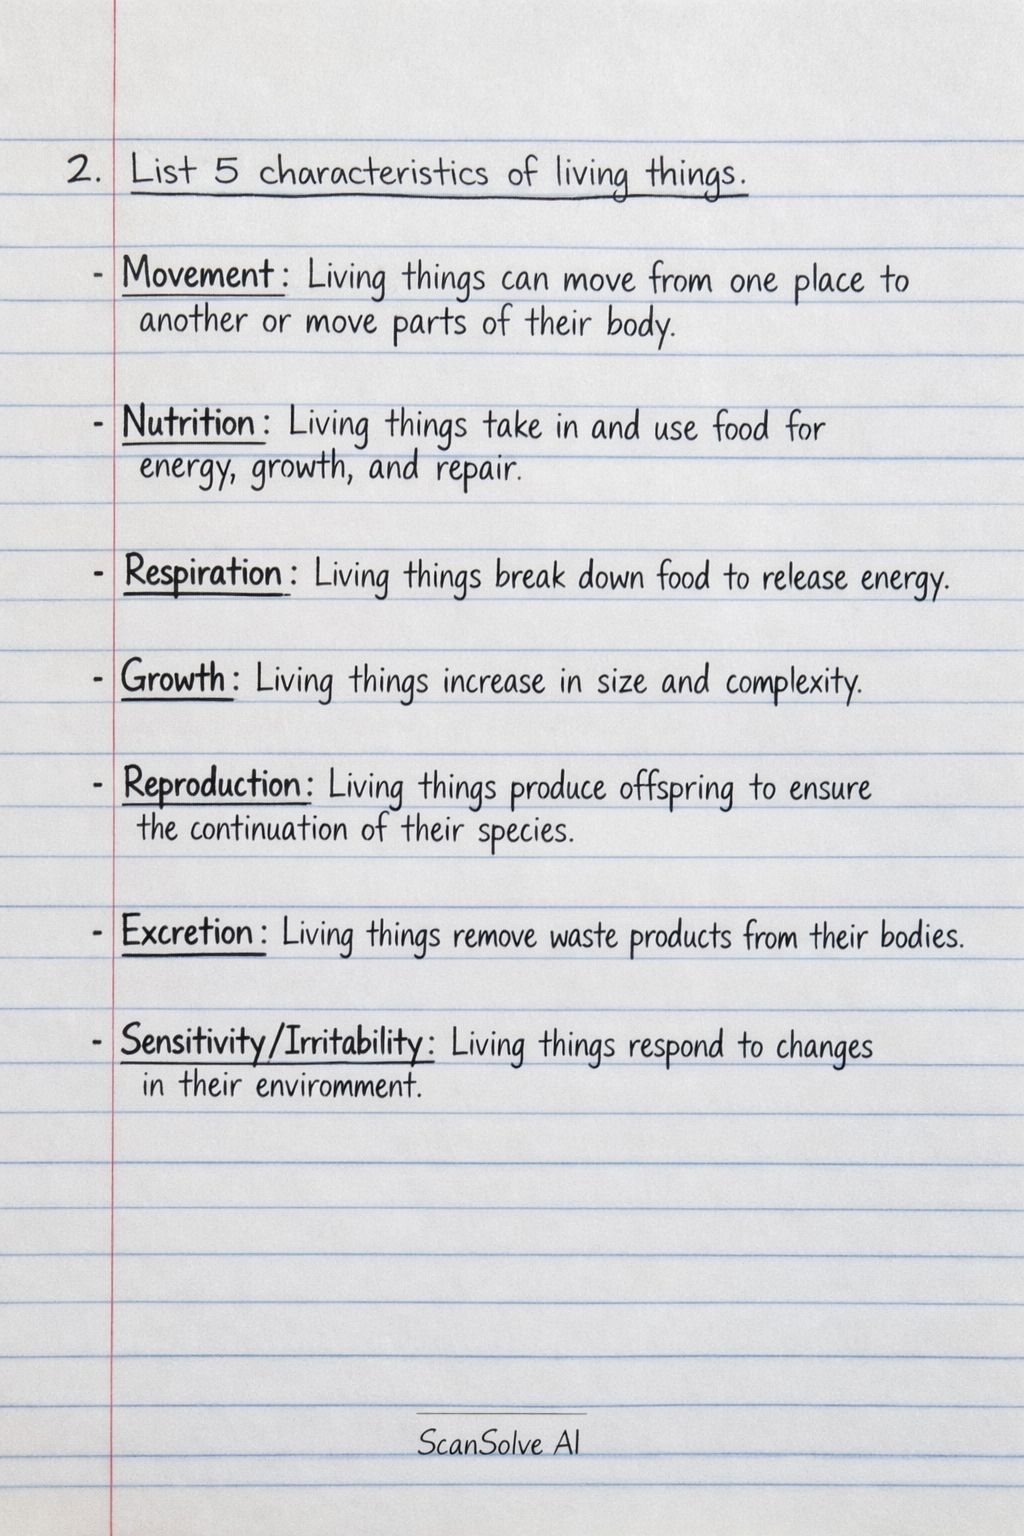 2. List 5 characteristics of living things.
- Movement: Living things can move from one place to
another or move parts of their body.
- Nutrition: Living things take in and use food for
energy, growth, and repair.
- Respiration: Living things break down food to release energy.
- Growth: Living things increase in size and complexity.
- Reproduction: Living things produce offspring to ensure
the continuation of their species.
- Excretion: Living things remove waste products from their bodies.
- Sensitivity/Irritability: Living things respond to changes
in their enviromment.
ScanSolve AI